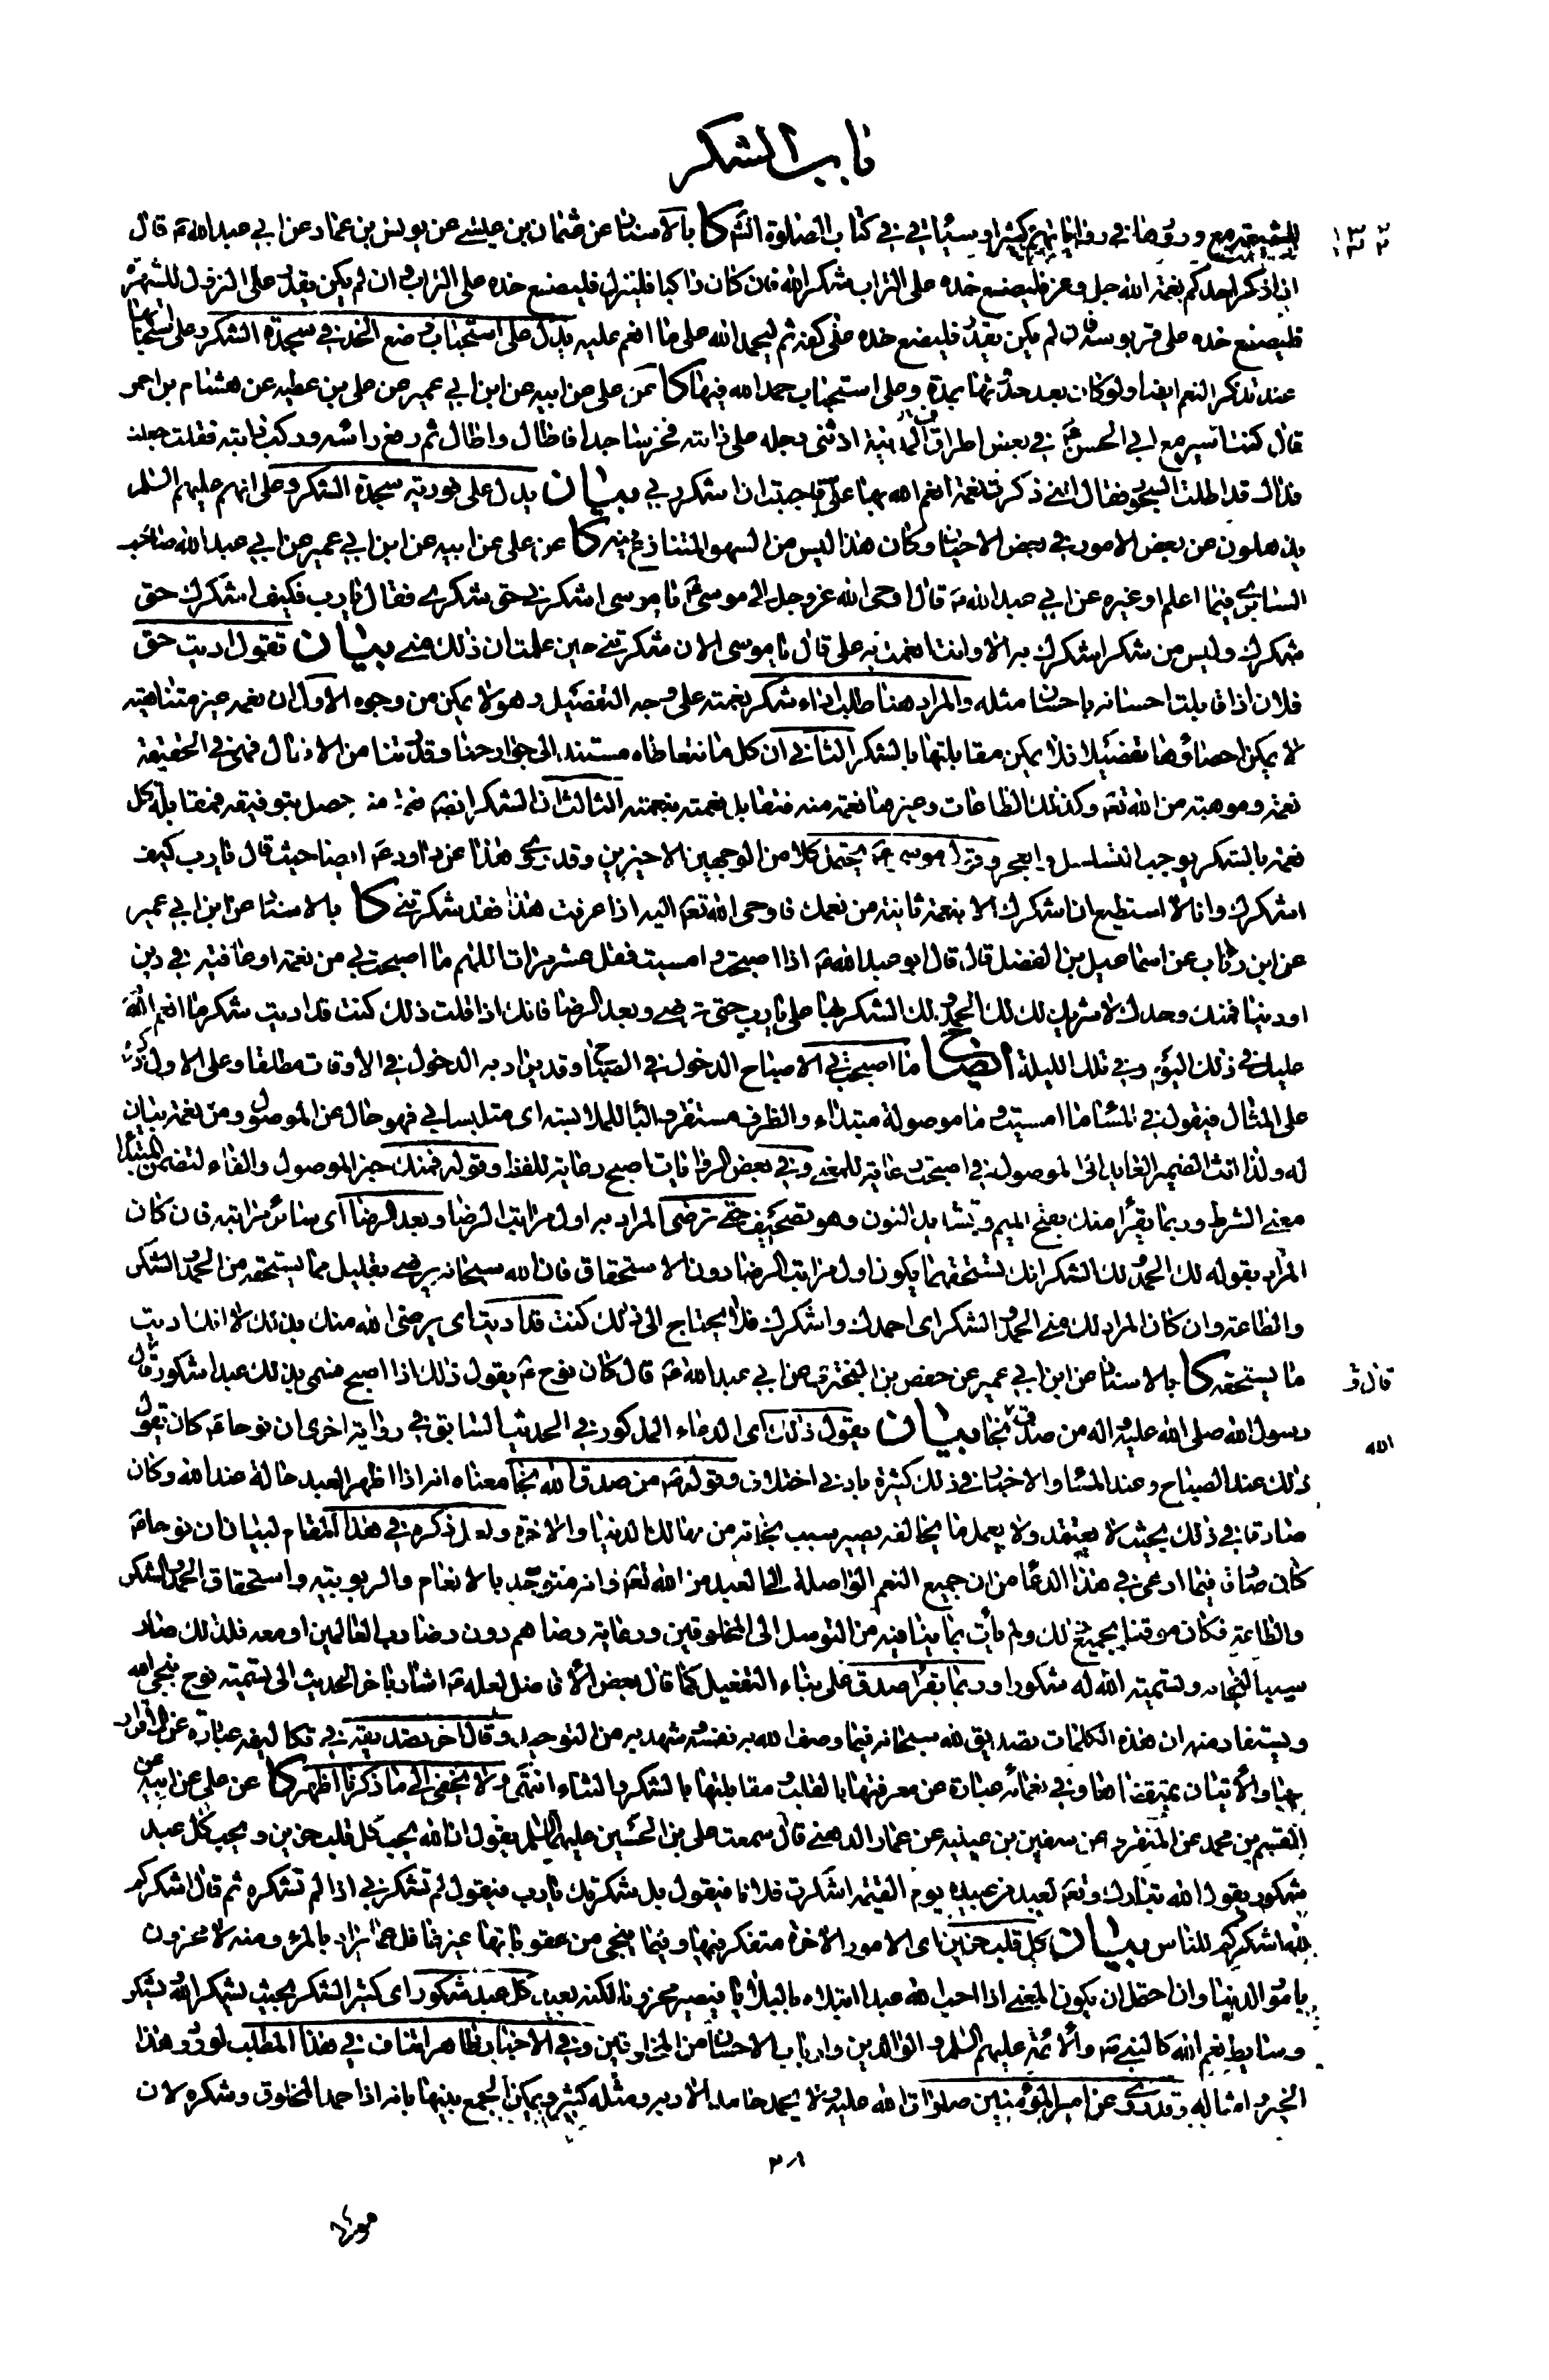 باب الشكر
وردوها في رواياتهم كثيرا وسيأتي في كتاب الصلوة انش كا بالاسناد عن عثمان بن عيسى عن يونس بن عمار عن ابي عبدالله ع قال
اذا ذكر احدكم نعمة الله جل وعز فليضع خده على التراب شكرا لله فان كان راكبا فلينزل فليضع خده على التراب وان لم يكن يقدر على النزول للشهرة
فليضع خده على قربوسه فان لم يكن يقدر فليضع خده على كفه ثم ليحمد الله على ما انعم عليه يدل على استحباب وضع الخد في سجدة الشكر وعلى استحبابها
عند تذكر النعم ايضا ولو كان بعد حدوثها بمدة وعلى استحباب حمد الله فيها كا عن علي عن ابيه عن ابن ابي عمير عن علي بن عطيه عن هشام بن احمر
قال كنت اسير مع ابي الحسن ع في بعض اطراف المدينة اذ ثنى رجله على دابته فخر ساجدا فاطال واطال ثم رفع راسه وركب دابته فقلت جعلت
فداك قد اطلت السجود فقال انني ذكرت نعمة انعم الله بها علي فاحببت ان اشكر ربي بيان يدل على فورية سجدة الشكر وعلى انهم عليهم السلم
يذهلون عن بعض الامور في بعض الاحيان وكان هذا ليس من السهو المتنازع فيه كا عن علي عن ابيه عن ابن ابي عمير عن ابي عبدالله صاحب
السابري فيما اعلم او غيره عن ابي عبدالله ع قال اوحى الله عز وجل الى موسى ع يا موسى اشكرني حق شكري فقال يا رب فكيف اشكرك حق
شكرك وليس من شكر اشكرك به الا وانت انعمت به علي قال يا موسى الان شكرتني حين علمت ان ذلك مني بيان تقول اديت حق
فلان اذا قابلت احسانه باحسان مثله والمراد هنا طلب اداء شكر نعمته على وجه التفضيل وهو لا يمكن من وجوه الاول ان نعمه غير متناهية
لا يمكن احصاؤها تفضيلا فلا يمكن مقابلتها بالشكر الثاني ان كل ما نتعاطاه مستند الى جوارحنا وقدرتنا من الافعال فهي في الحقيقة
نعمة وموهبة من الله تع وكذلك الطاعات وغيرها نعمة منه فتقابل نعمته بنعمته الثالث ان الشكر ايضا نعمة منه حصل بتوفيقه فمقابلة كل
نعمة بالشكر يوجب التسلسل والعجز وقول موسى ع يحتمل كلا من الوجهين الاخيرين وقد روي هذا عن داود ع ايضا حيث قال يا رب كيف
اشكرك وانا لا استطيع ان اشكرك الا بنعمة ثانية من نعمك فاوحى الله تع اليه اذا عرفت هذا فقد شكرتني كا بالاسناد عن ابن ابي عمير
عن ابن رئاب عن اسماعيل بن الفضل قال قال ابو عبدالله ع اذا اصبحت وامسيت فقل عشر مرات اللهم ما اصبحت بي من نعمة او عافية في دين
او دنيا فمنك وحدك لا شريك لك لك الحمد ولك الشكر بها علي يا رب حتى ترضى وبعد الرضا فانك اذا قلت ذلك كنت قد اديت شكر ما انعم الله
عليك في ذلك اليوم وفي تلك الليلة ايضاح ما اصبحت بي الاصباح الدخول في الصباح وقد يراد به الدخول في الاوقات مطلقا وعلى الاول ذكره
على المثال فيقول في المساء ما امسيت وما موصولة مبتداء والظرف مستقر والباء للملابسة اي متلبسا بي فهو حال عن الموصول ومن نعمة بيان
له ولذا انث الضمير العايد الى الموصول في اصبحت رعاية للمعنى وفي بعض الروايات اصبح رعاية للفظ وقوله فمنك خبر الموصول والفاء لتضمن المبتدا
معنى الشرط وربما يقرأ منك بفتح الميم وتشديد النون وهو تصحيف حتى ترضى المراد به اول مراتب الرضا وبعد الرضا اي سائر مراتبه فان كان
المراد بقوله لك الحمد ولك الشكر انك تستحقهما يكون اول مراتب الرضا دون الاستحقاق فان الله سبحانه يرضى بقليل مما يستحقه من الحمد والشكر
والطاعة وان كان المراد لك مني الحمد والشكر اي احمدك واشكرك فلا يحتاج الى ذلك كنت قد اديت اي يرضى الله منك بذلك لا انك اديت
ما يستحقه كا بالاسناد عن ابن ابي عمير عن حفص بن البختري عن ابي عبدالله ع قال كان نوح ع يقول ذلك اذا اصبح فسمي بذلك عبدا شكورا وقال
رسول الله صلى الله عليه واله من صدق الله نجا بيان يقول ذلك اي الدعاء المذكور في الحديث السابق في رواية اخرى ان نوحا ع كان يقول
ذلك عند الصباح وعند المساء والاخبار في ذلك كثيرة بادنى اختلاف وقوله ع من صدق الله نجا معناه انه اذا اظهر العبد حالة عند الله وكان
صادقا في ذلك بحيث لا يعتقد ولا يعمل ما يخالفه يصير سبب نجاته من مهالك الدنيا والاخرة ولعل ذكره في هذا المقام لبيان ان نوحا ع
كان صادقا فيما ادعى في هذا الدعاء من ان جميع النعم الواصلة الى العبد من الله تع وانه متوحد بالانعام والربوبية واستحقاق الحمد والشكر
والطاعة فكان موقنا بجميع ذلك ولم يأت بما ينافيه من التوسل الى المخلوقين ورعاية رضاهم دون رضا رب العالمين او معه فلذلك صار
سببا لنجاته وتسمية الله له شكورا وربما يقرأ صدق على بناء التفعيل كما قال بعض الافاضل لعله ع اشار باخر الحديث الى تسمية نوح بنجي الله
ويستفاد منه ان هذه الكلمات تصديق لله سبحانه فيما وصف الله به نفسه وشهد به من التوحيد وقال اخر تصديقه في تكاليفه عبارة عن الاقرار
بها والاتيان بمقتضاها وفي نعمائه عبارة عن معرفتها بالقلب ومقابلتها بالشكر والثناء انتهى ولا يخفى ان ما ذكرنا اظهر كا عن علي عن ابيه عن
القسم بن محمد عن المنقري عن سفين بن عيينه عن عمار الدهني قال سمعت علي بن الحسين عليهما السلم يقول ان الله يحب كل قلب حزين ويحب كل عبد
شكور يقول الله تبارك وتع لعبد من عبيده يوم القيمة اشكرت فلانا فيقول بل شكرتك يا رب فيقول لم تشكرني اذا لم تشكره ثم قال اشكركم
لله اشكركم للناس بيان كل قلب حزين اي الامور الاخرة متفكر فيها وفيما ينجي من عقوباتها غير غافل عما يراد بالمرء ومنه لا محزون
بامور الدنيا وان احتمل ان يكون المعنى اذا احب الله عبدا ابتلاه بالبلايا فيصير محزونا لكنه بعيد كل عبد شكور اي كثير الشكر بحيث يشكر الله ويشكر
وسايط نعم الله كالنبي ص والائمة عليهم السلم والوالدين وارباب الاحسان من المخلوقين وفي الاخبار ظاهرا تناف في هذا المطلب لورود هذا
الخبر وامثاله وقد روي عن امير المؤمنين صلوات الله عليه ولا يحمد حامد الا ربه ومثله كثير ويمكن الجمع بينها بانه اذا حمد المخلوق وشكره لان
قال و
الله
٣٠٨